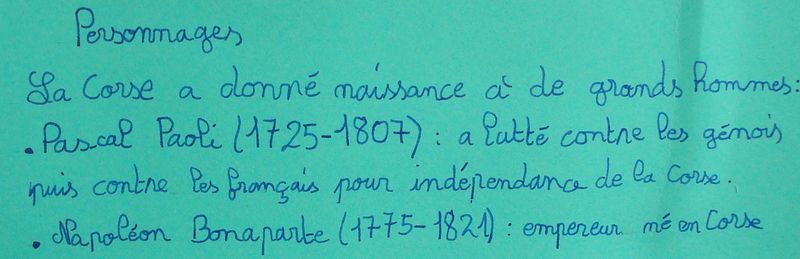 Personnages
La Corse a donné naissance à de grands hommes:
. Pascal Paoli (1725-1807) : a lutté contre les génois
puis contre les français pour indépendance de la Corse.
. Napoléon Bonaparte (1775-1821) : empereur né en Corse